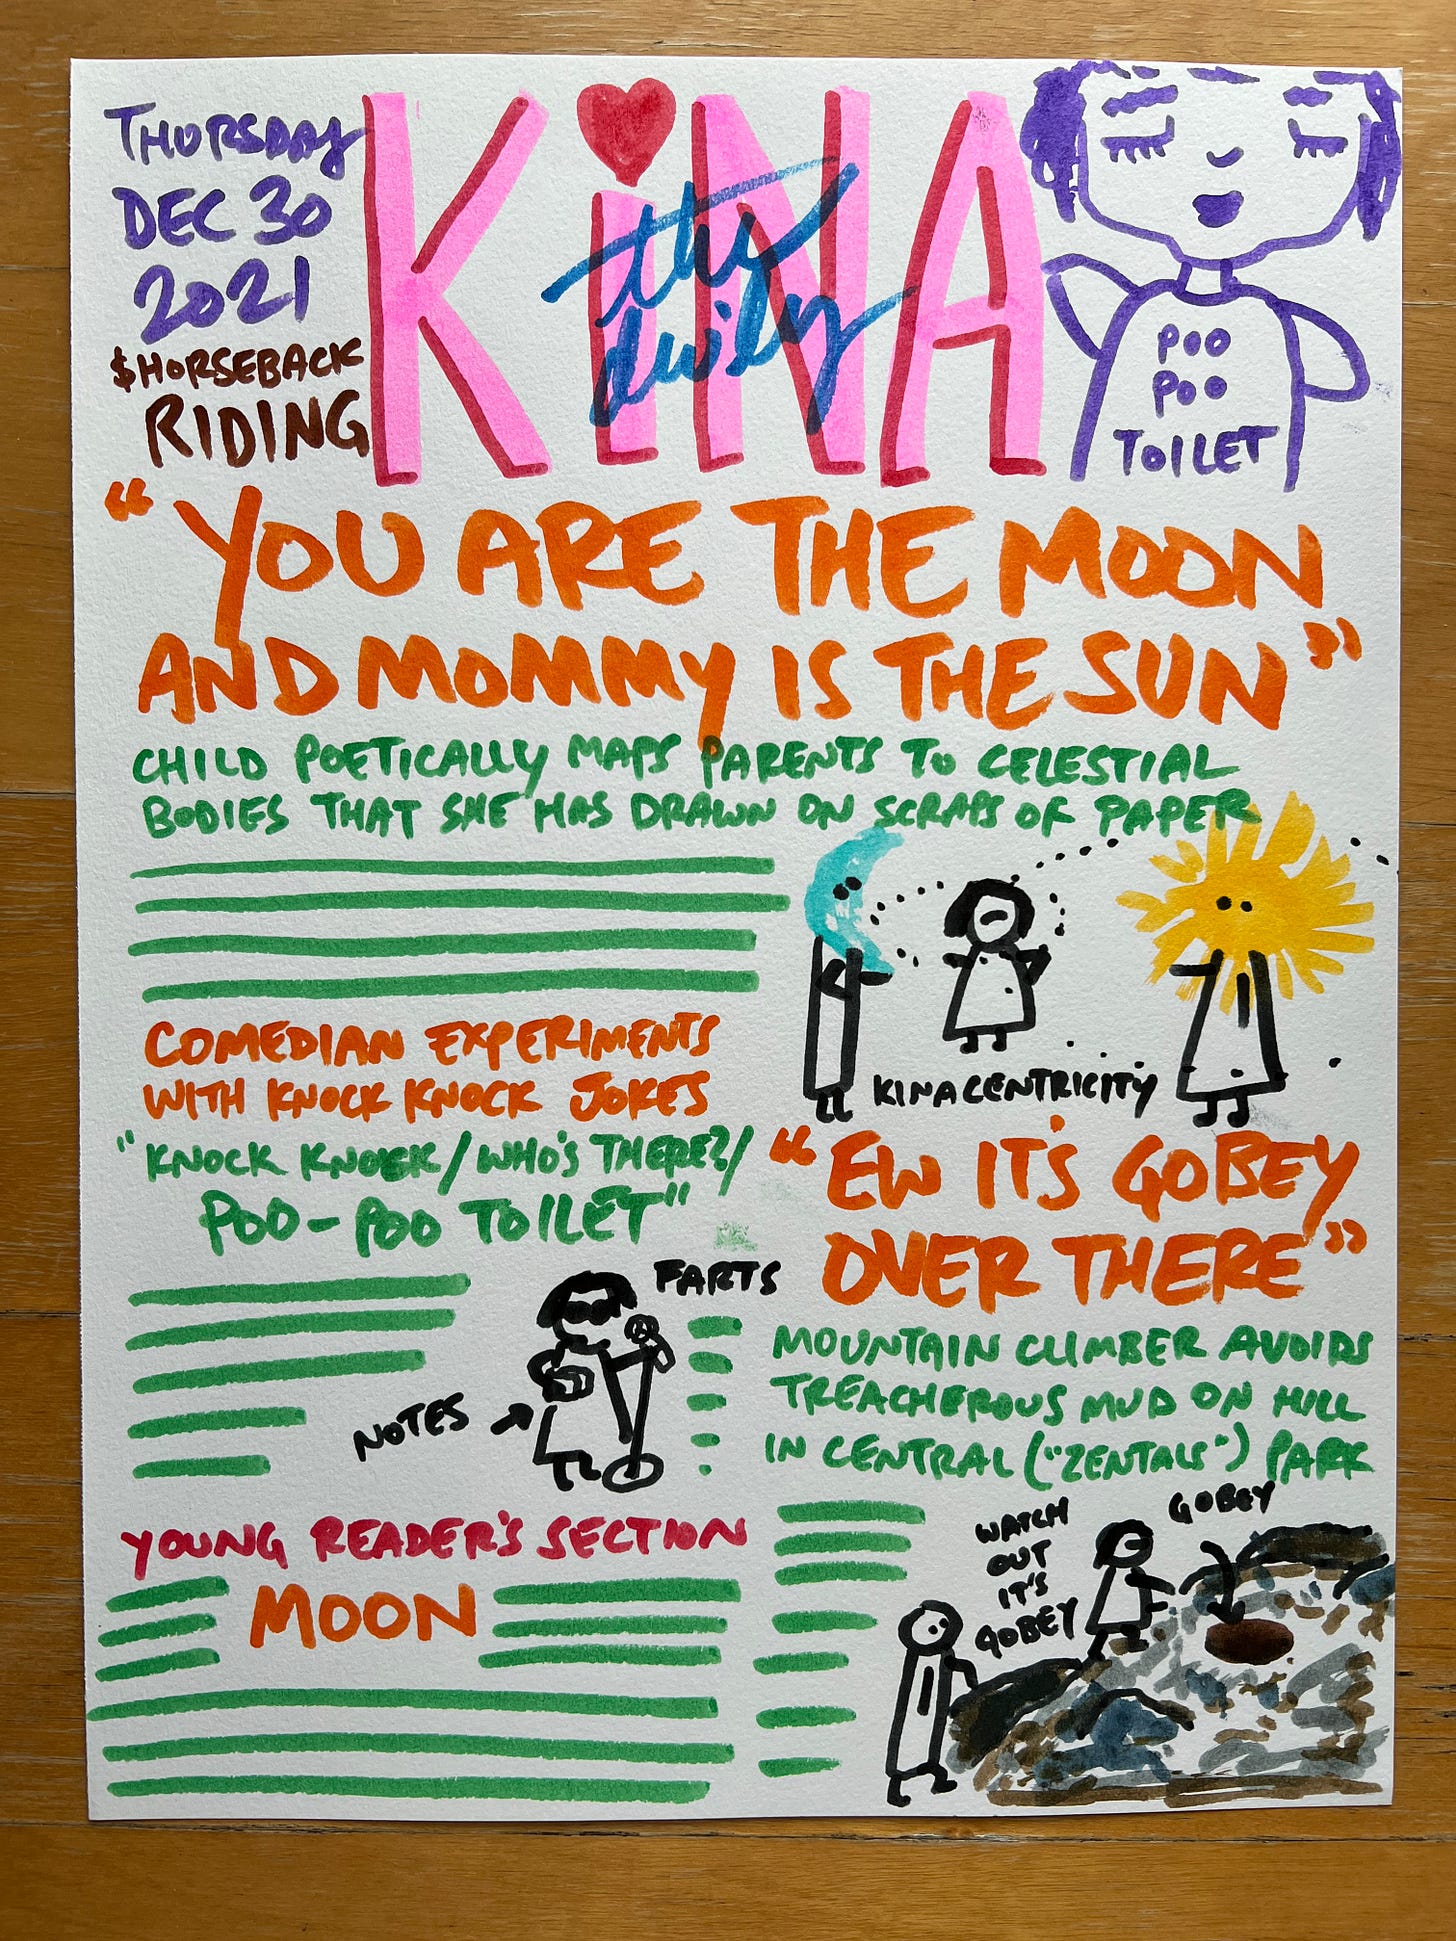 THURSDAY
DEC 30
2021
$HORSEBACK
RIDING
KiNA
the
daily
POO
POO
TOILET
"YOU ARE THE MOON
AND MOMMY IS THE SUN"
CHILD POETICALLY MAPS PARENTS TO CELESTIAL
BODIES THAT SHE HAS DRAWN ON SCRAPS OF PAPER
KINACENTRICITY
COMEDIAN EXPERIMENTS
WITH KNOCK KNOCK JOKES
"KNOCK KNOCK/WHO'S THERE?/
POO-POO TOILET"
FARTS
NOTES
"EW IT'S GOBEY
OVER THERE"
MOUNTAIN CLIMBER AVOIDS
TREACHEROUS MUD ON HILL
IN CENTRAL ("ZENTALS") PARK
WATCH
OUT
IT'S
GOBEY
GOBEY
YOUNG READER'S SECTION
MOON